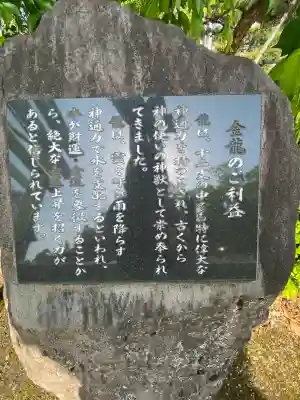 金龍のご利益
龍は、十二支の中でも特に偉大な
神通力を持つとされ、古くから
神の使いの神獣として崇め奉られ
てきました。
は、を呼び雨を降らす
神通力で水を支配するといわれ、
水が財運・を象徴することか
ら、絶大な上昇を招く力が
あると信じられています。